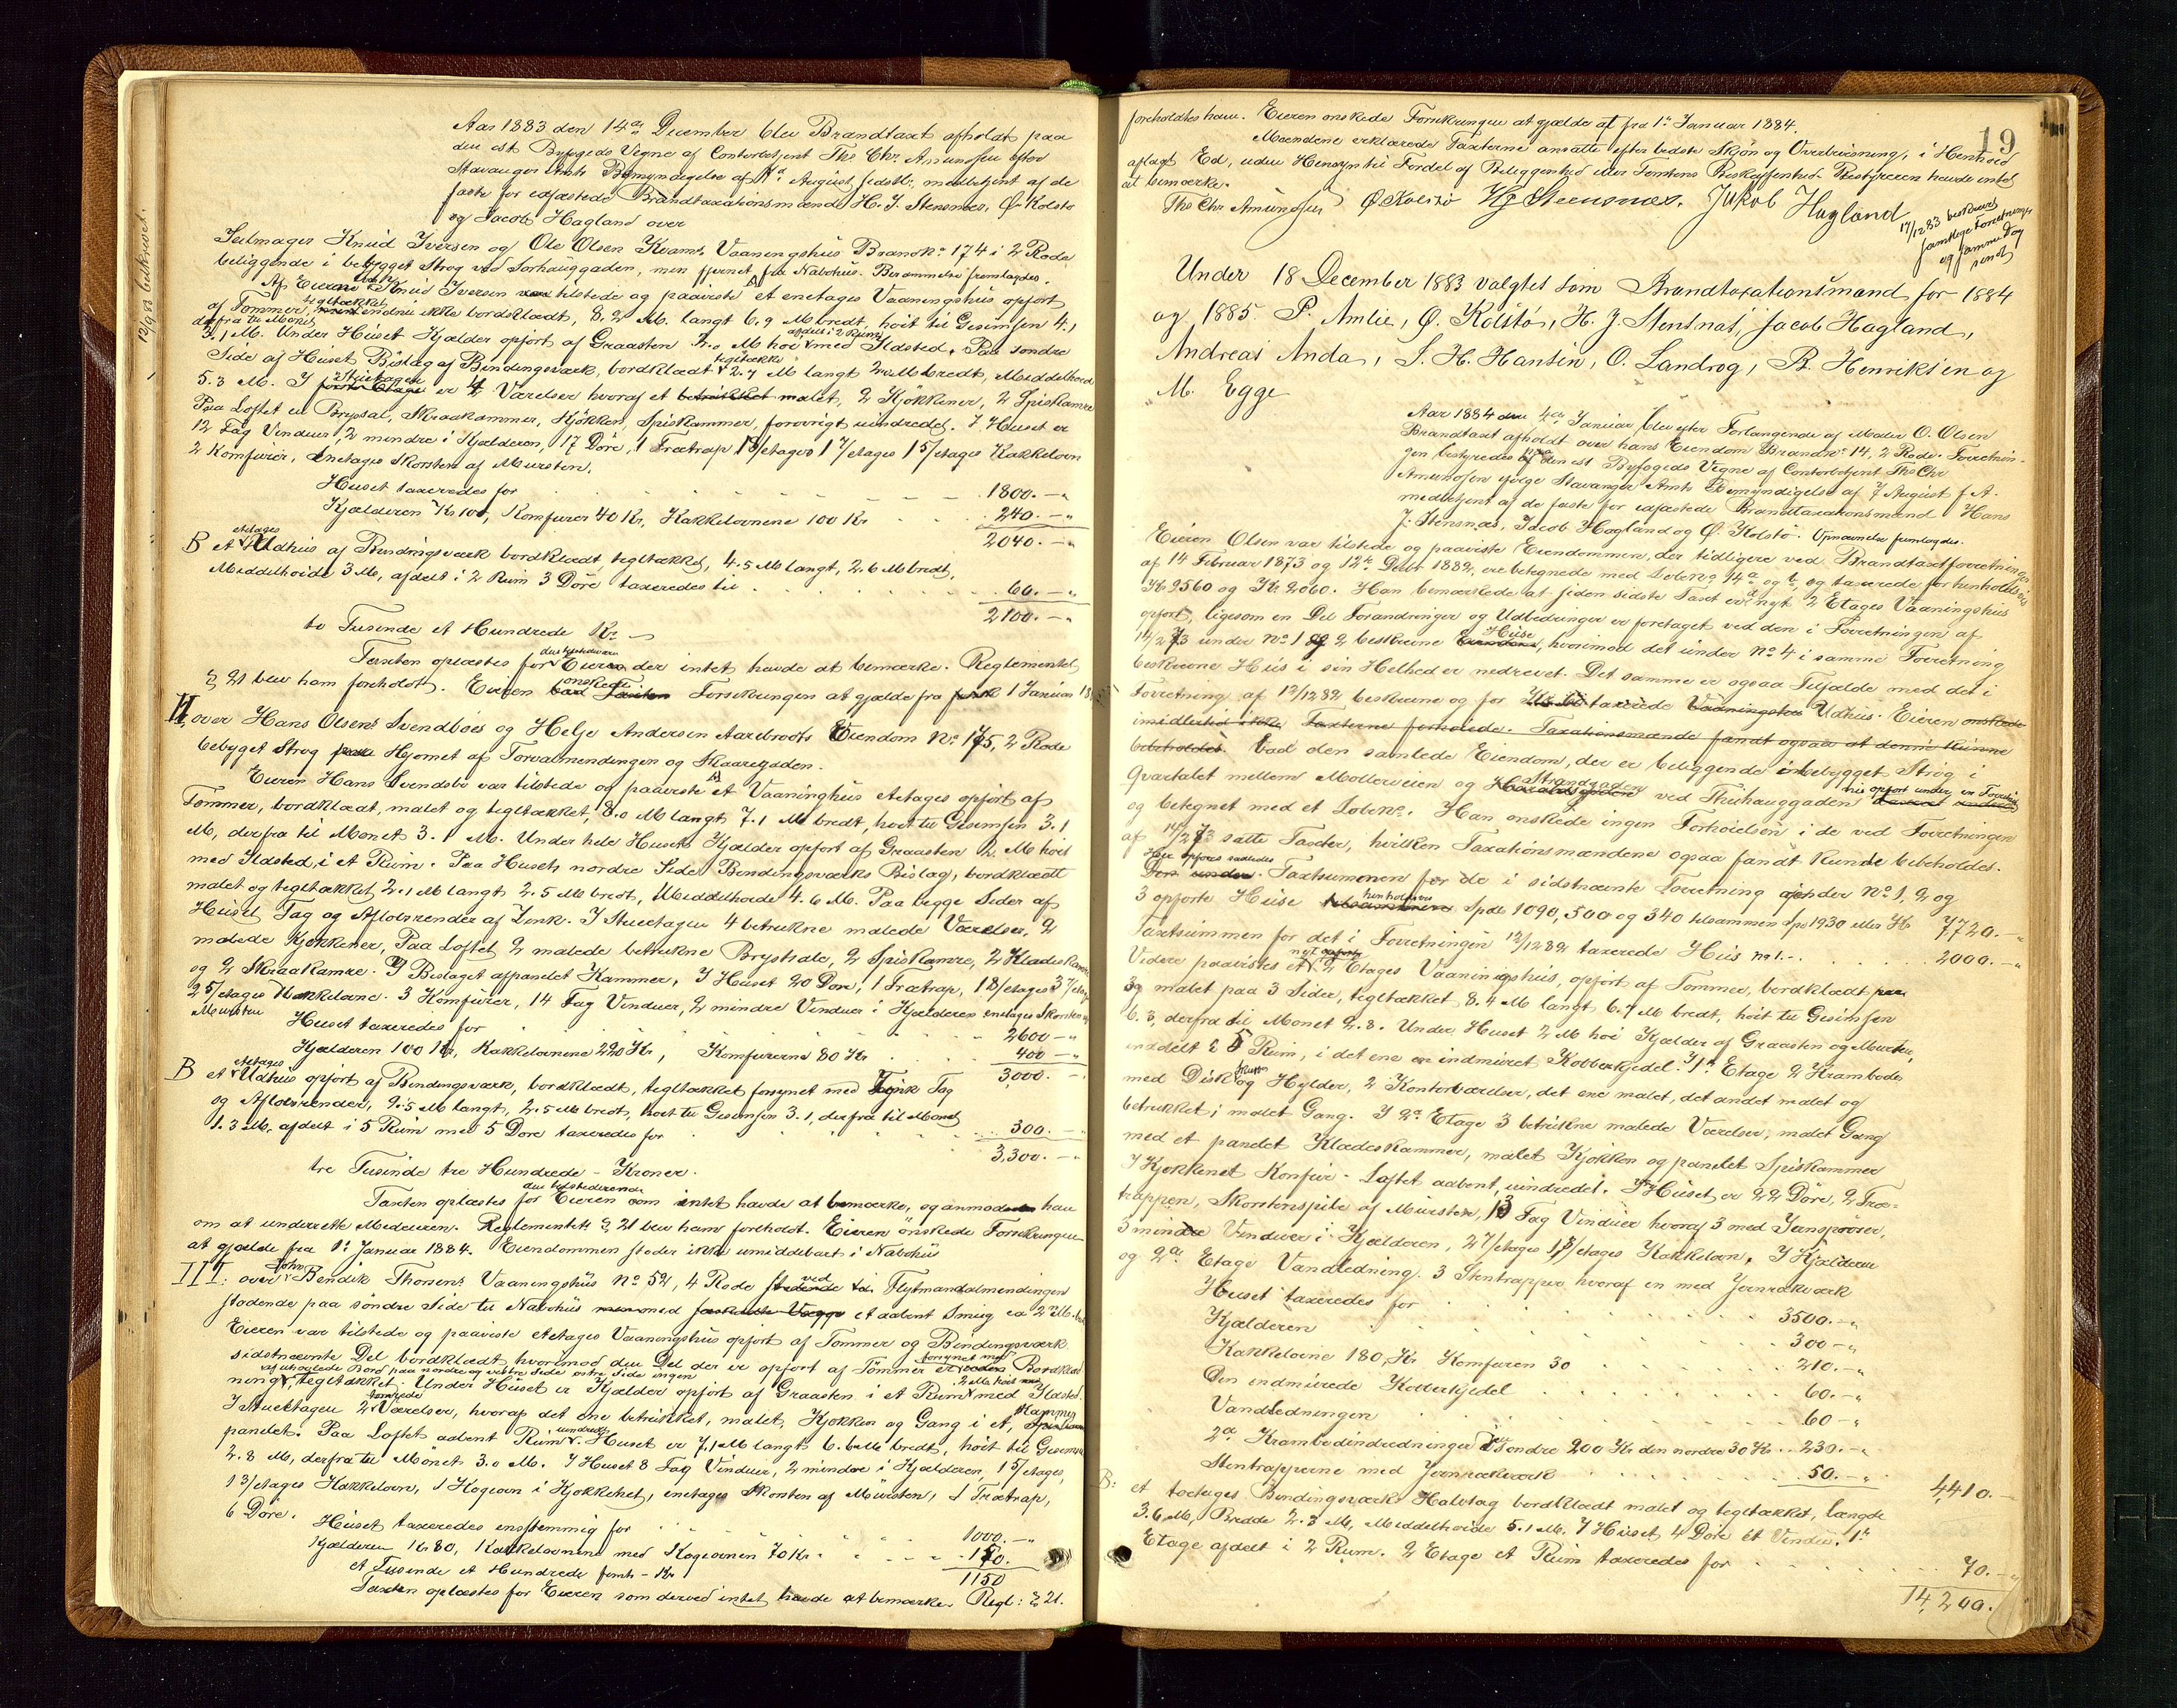 12/9 83 beskreved.
Aar 1883 den 14de December blev Brandtaxt afholdt paa
den cst Byfogeds Vegne af Contorbetjent Ths Chr Amundsen efter
Stavanger Amts Bemyndigelse af 7de August sidstl., medbetjent af de
faste for edfæstede Brandtaxationsmænd H. J. Stensnæs, Ø. Kolstø
og Jacob Hagland over
Seilmager Knud Iversen og Ole Olsen Kvams Vaaningshus Brandno 174 i 2 Rode
beliggende i bebygget Strøg ved Sørhauggaden, men fjernet fra Nabohus. Berammelse fremlagdes.
Af Eierne Knud Iversen var tilstede og paaviste A et enetages Vaaningshus opført
af Tømmer, tegltækket endnu ikke bordklædt, 8.2 M. langt 6.9 M bredt, høit til Gesimsen 4.1
derfra til Mønet
3.1 M. Under Huset Kjælder opført af Graasten 2.0 M høi med Ildsted, afdelt i 2 Rum. Paa søndre
Side af Huset Bislag af Bindingsværk, bordklædt tegltækket 2.7 M langt M bredt, Middelhøide
5.3 M. I første Etage Stuetagen er 4 Værelser hvoraf et betrukket malet, 2 Kjøkkener, 2 Spiskamre
Paa Loftet en Brysal, Skraakammer, Kjøkken, Spiskammer, forøvrigt uindredet. I Huset er
12 Fag Vinduer, 2 mindre i Kjælderen, 17 Døre, 1 Trætrap 1 8/etages 1 7/etages 1 5/etages Kakkelovn
2 Komfurer, enetages Skorsten af Mursten.
Huset taxeredes for 1800.-"
Kjælderen Kr 100, Komfurer 40 Kr, Kakkelovnene 100 Kr 240.-"
2040.-"
B et etages Udhus af Bindingsværk bordklædt, tegltækket, 4.5 M langt, 2.6 M bredt,
Middelhøide 3 M, afdelt i 2 Rum 3 Døre taxeredes til 60.-"
2100.-"
to Tusinde et Hundrede Kr -
Taxten oplæstes for den tilstedeværende Eieren der intet havde at bemærke. Reglementets
§ 21 blev ham foreholdt. Eieren bad Taxten ønskede Forsikringen at gjælde fra 1 Januar 18
II, over Hans Olsens Svendbøes og Helje Andersen Aarebrots Eiendom No 175, 2 Rode
bebygget Strøg paa Hjørnet af Torvalmendingen og Skaaregaden.
Eieren Hans Svendsbø var tilstede og paaviste A et Vaaninghus etetages opført af
Tømmer, bordklædt, malet og tegltækket, 8.0 M langt, 7.1 M bredt, høit til Gesimsen 3.1
M, derfra til Mønet 3.1 M. Under hele Huset Kjælder opført af Graasten 2 M høit
med Ildsted, i et Rum. Paa Husets nordre Side Bindingsværks Bislag, bordklædt
malet og tegltækket 2.1 M langt 2.5 M bredt, Middelhøide 4.6 M. Paa begge Sider af
Huset Tag og Afløbsrender af Zink. I Stuetagen 4 betrukne malede Værelser, 2
malede Kjøkkener, Paa Loftet 2 malede betrukne Brystsale, 2 Spiskamre, 2 Klædeskamre
og 2 Skraakamre. I Bislaget afpanelet Kammer, I Huset 20 Døre, 1 Trætrap, 1 8/etages 3 7/etages
2 5/etages Kakkelovne. 3 Komfurer, 14 Fag Vinduer, 2 mindre Vinduer i Kjælderen enetages Skorsten af
Mursten
Huset taxeredes for 2600-"
Kjælderen 100 Kr, Kakkelovnene 220 Kr, Komfurerne 80 Kr 400-"
3000.-
B et etages Udhus opført af Bindingsværk, bordklædt, tegltækket forsynet med Zink Tag
og Afløbsrender, 9.5 M langt, 2.5 M bredt, høit til Gesimsen 3.1, derfra til Mønet
1.3 M, afdelt i 5 Rum med 5 Døre taxeredes for 300.-
3,300.-"
tre Tusinde tre Hundrede - Kroner.
Taxten oplæstes for den tilstedeværende Eieren som intet havde at bemærke, og anmodede han
om at underrette Medeieren. Reglementets § 21 blev ham foreholdt. Eieren ønskede Forsikringen
at gjælde fra 1ste Januar 1884. Eiendommen støder ikke umiddelbart i Nabohus
III: over John Bendik Thorsens Vaaningshus No 52, 4 Rode stødende til ved Flytmandalmendingen
stødende paa søndre Side til Nabohus men med et aabent Smug ca 2 M.
Eieren var tilstede og paaviste etetages Vaaningshus opført af Tømmer og Bindingsværk
sidstnævnte Del bordklædt hvorimod den Del der er opført af Tømmer er forsynet med Bordklæd
af uhøvlede Bord paa nordre og vestre Side østre Side ingen
ning, tegltækket. Under Huset er Kjælder opført af Graasten i et Rum 2 M høit med Ildsted.
I Stuetagen 2 Værelser, hvoraf det ene betrukket, malet, Kjøkken og Gang i et, Kammer
panelet. Paa Loftet aabent Rum uindredet. Huset er 7.1 M langt 6.6 M bredt, høit til Gesimsen
2.8 M, derfra til Mønet 3.0 M. I Huset 8 Fag Vinduer, 2 mindre i Kjælderen, 1 5/etages,
1 3/etages Kakkelovn, 1 Kogeovn i Kjøkkenet, enetages Skorsten af Mursten, 1 Trætrap,
6 Døre.
Huset taxeredes enstemmig for 1000.-"
Kjælderen Kr. 80, Kakkelovnene med Kogeovnen 70 Kr. 150.
et Tusinde et Hundrede femti - Kr 1150
Taxten oplæstes for Eieren som derved intet havde at bemærke. Regl: § 21.
19
foreholdtes ham. Eieren ønskede Forsikringen at gjælde fra 1ste Januar 1884.
Mændene erklærede Taxterne ansatte efter bedste Skjøn og Overbevisning, i Henhold
aflagt Ed, uden Hensyn til Fordel af Beliggenhed eller Tomtens Beskaffenhed. Bestyreren havde intet
at bemærke.
Ths Chr Amundsen Ø Kolstø Hj Steensnæs. Jakob Hagland
17/12 83 beskreved
samtlige Forretninger
og samme Dag
sendt
Under 18 December 1883 valgtes som Brandtaxationsmænd for 1884
og 1885. P. Amlie, Ø. Kolstø, H. J. Stensnæs, Jacob Hagland,
Andreas Anda, S. H. Hansen, O. Landrog, B. Henriksen og
M. Egge
Aar 1884 den 4de Januar blev efter Forlangende af Maler O. Olsen
Brandtaxt afholdt over hans Eiendom Brandno 14, 2 Rode. Forretnin-
gen bestyredes af den cst Byfogeds Vegne af Contorbetjent Ths Chr
Amundsen ifølge Stavanger Amts Bemyndigelse af 7 August f. A.
medbetjent af de faste for edfæstede Brandtaxationsmænd Hans
J. Stensnæs, Jacob Hagland og Ø. Kolstø. Opnævnelse fremlagdes.
Eieren Olsen var tilstede og paaviste Eiendommen, der tidligere ved Brandtaxtforretninger
af 14 Februar 1873 og 12te Decbr 1882, ere betegnede med Løbeno 14a og b og taxerede for henholdsvis
Kr 9560 og Kr 2060. Han bemærkede at siden sidste Taxt er nyt 2 Etages Vaaningshus
opført, ligesom en Del Forandringer og Udbedringer er foretaget ved den i Forretningen af
14/2 73 under No 1 og 2 beskrevne Huse, hvorimod det under No 4 i samme Forretning
beskrevne Hus i sin Helhed er nedrevet. Det samme er ogsaa Tilfælde med det i
Forretning af 12/12 82 beskrevne og for Kr 60 taxerede Vaaningshus Udhus. Eieren ønskede
imidlertid ikke Taxterne forhøiede. Taxationsmænde fandt ogsaa at denne kunne
bebeholdes. bad den samlede Eiendom, der er beliggende i bebygget Strøg i
Qvartalet mellem Møllerveien og Haraldsgaden Strandgaden ved Thuhauggaden opført under en Forretning
og betegnet med et Løbeno. Han ønskede ingen Forhøielse i de ved Forretningen
af 14/2 73 satte Taxter, hvilken Taxationsmændene ogsaa fandt kunde bibeholdes.
Her opføres saaledes
Den under Taxtsummen for de i sidstnævnte Forretning under No 1, 2 og
3 opførte Huse tilsammen henholdsvis Spd 1090, 500 og 340 tilsammen Spd 1930 eller Kr 7720.-"
Taxtsummen for det i Forretningen 12/12 82 taxerede Hus no 1.- 2000.-"
Videre paavistes et nyt opført 2 Etages Vaaningshus, opført af Tømmer, bordklædt
og malet paa 3 Sider, tegltækket 8.4 M langt 6.7 M bredt, høit til Gesimsen
6.3, derfra til Mønet 2.8. Under Huset 2 M høi Kjælder af Graasten og Mursten,
inddelt i 5 Rum, i det ene en indmuret Kobberkjedel. I 1ste Etage 2 Kramboder
med Disk Skuffer og Hylder, 2 Kontorværelser, det ene malet, det andet malet og
betrukket, malet Gang. I 2den Etage 3 betrukne malede Værelser, malet Gang
med et panelet Klædeskammer, malet Kjøkken og panelet Spiskammer
I Kjøkkenet Komfur. Loftet aabent, uindredet. I Huset er 22 Døre, 2 Træ-
trappen, Skorstenspibe af Mursten, 13 Fag Vinduer hvoraf 3 med Jernsprosser,
3 mindre Vinduer i Kjælderen, 2 7/etages 1 8/etages Kakkelovn. I Kjælderen
og 2den Etage Vandledning. 3 Stentrapper hvoraf en med Jernrækværk
Huset taxeredes for 3500.-"
Kjælderen 300-"
Kakkelovne 180, Kr Komfuren 30 210.-"
Den indmurede Kobberkjedel 60.-"
Vandledningen 60-"
2de Krambodindredninger den søndre 200 Kr den nordre 30 Kr 230.-"
Stentrapperne med Jernrækværk 50.-" 4,410.-
B: et toetages Bindingsværks Halvtag bordklædt malet og tegltækket, længde
3.6 M, Bredde 2.3 M, Middelhøide 5.1 M. I Huset 4 Døre et Vindu. 1ste
Etage afdelt i 2 Rum. 2 Etage et Rum taxeredes for 70.-"
14,200.